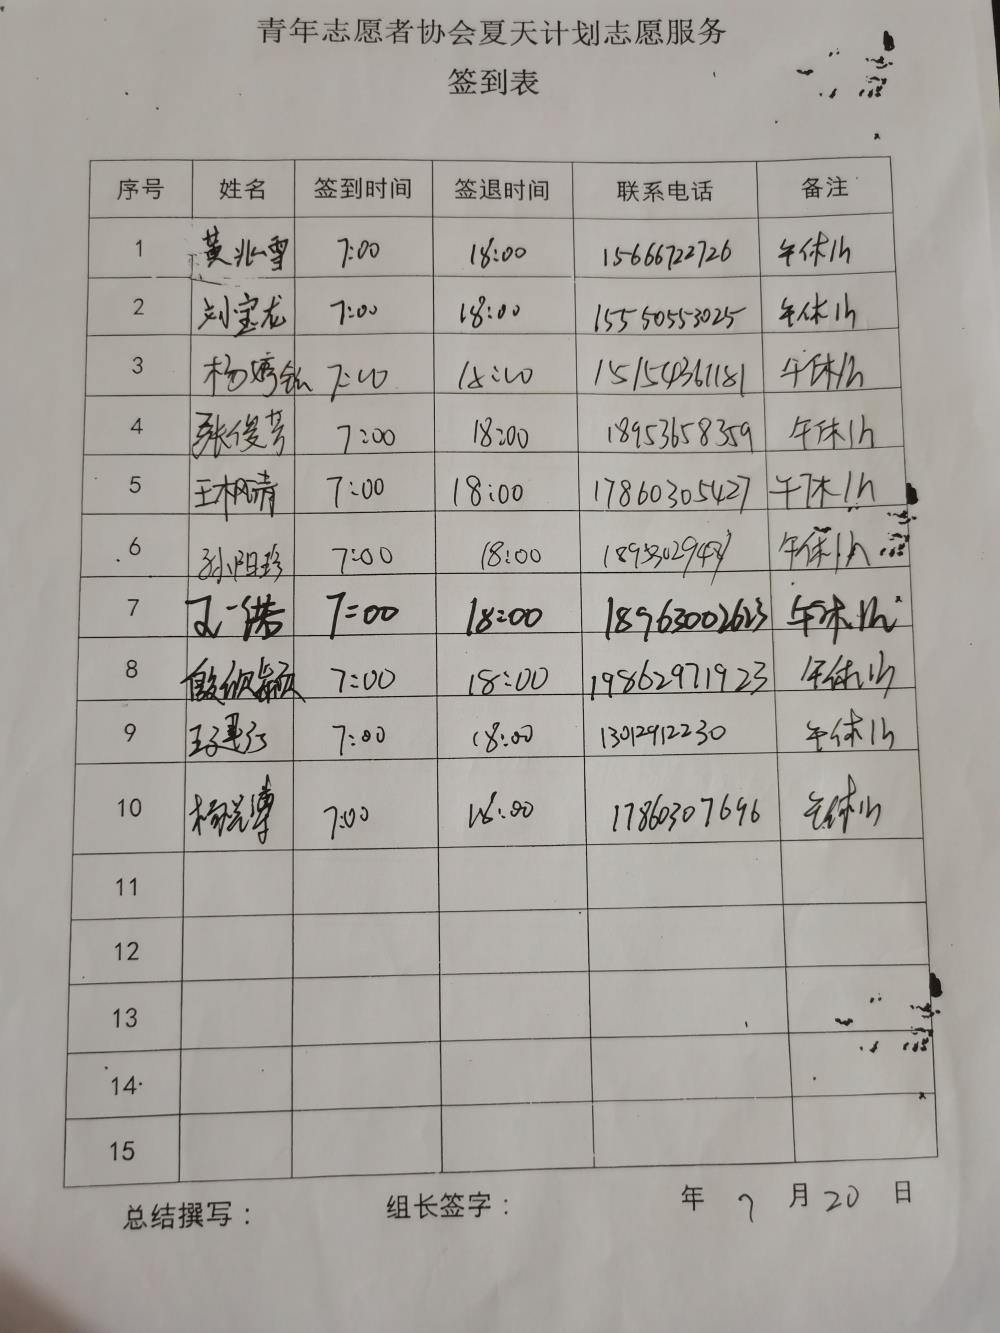 青年志愿者协会夏天计划志愿服务
签到表
序号 姓名 签到时间 签退时间 联系电话 备注
1 黄兆雪 7:00 18:00 15666722726 午休1h
2 刘宝龙 7:00 18:00 15550553025 午休1h
3 杨婷 7:00 18:00 15154361181 午休1h
4 张俊芳 7:00 18:00 18953658359 午休1h
5 王枫清 7:00 18:00 17860305427 午休1h
6 孙阳珍 7:00 18:00 午休1h
7 王一诺 7:00 18:00 18963002623 午休1h
8 殷欣颖 7:00 18:00 19862971923 午休1h
9 7:00 18:00 13012912230 午休1h
10 杨 7:00 18:00 17860307696 午休1h
11
12
13
14
15
总结撰写： 组长签字： 年 7 月 20 日